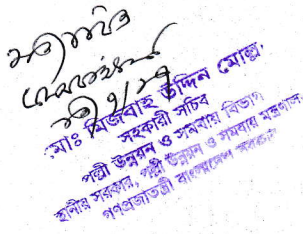 সত্যায়িত
মোঃ মিজবাহ উদ্দিন মোল্লা
সহকারী সচিব
পল্লী উন্নয়ন ও সমবায় বিভাগ
স্থানীয় সরকার, পল্লী উন্নয়ন ও সমবায় মন্ত্রণালয়
গণপ্রজাতন্ত্রী বাংলাদেশ সরকার